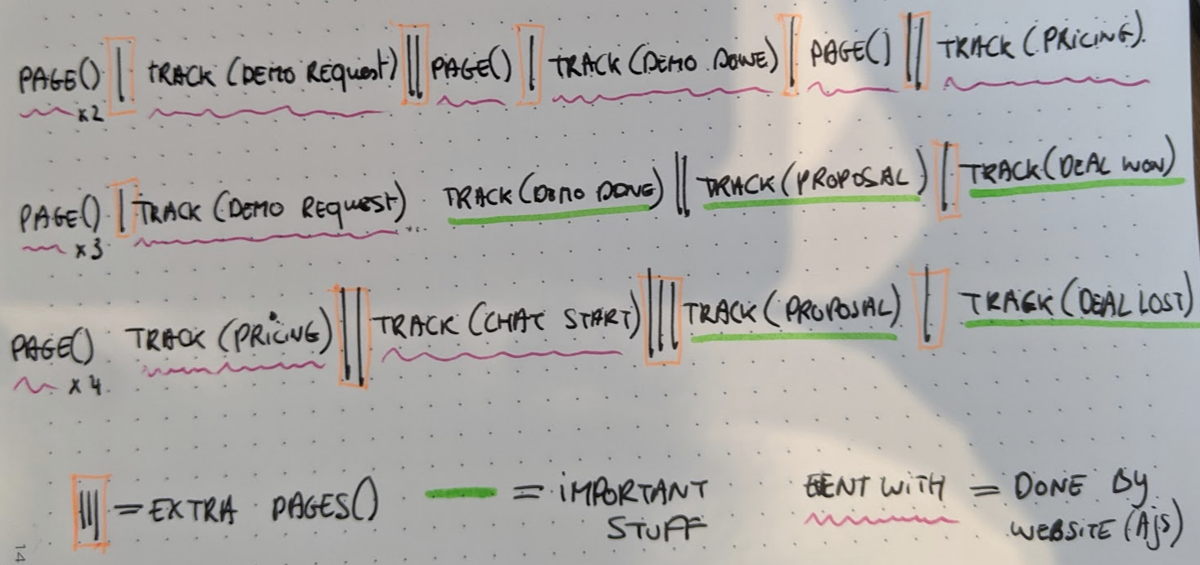 PAGE() | TRACK (DEMO REQUEST) || PAGE() | TRACK (DEMO DONE) | PAGE() || TRACK (PRICING).
x2
PAGE() | TRACK (DEMO REQUEST) ... TRACK (DEMO DONE) || TRACK (PROPOSAL) | TRACK (DEAL WON)
x3
PAGE() TRACK (PRICING) || TRACK (CHAT START) ||| TRACK (PROPOSAL) | TRACK (DEAL LOST)
x4.
||| = EXTRA PAGES() = IMPORTANT STUFF
WITH = DONE By WEBSITE (Ajs)
14